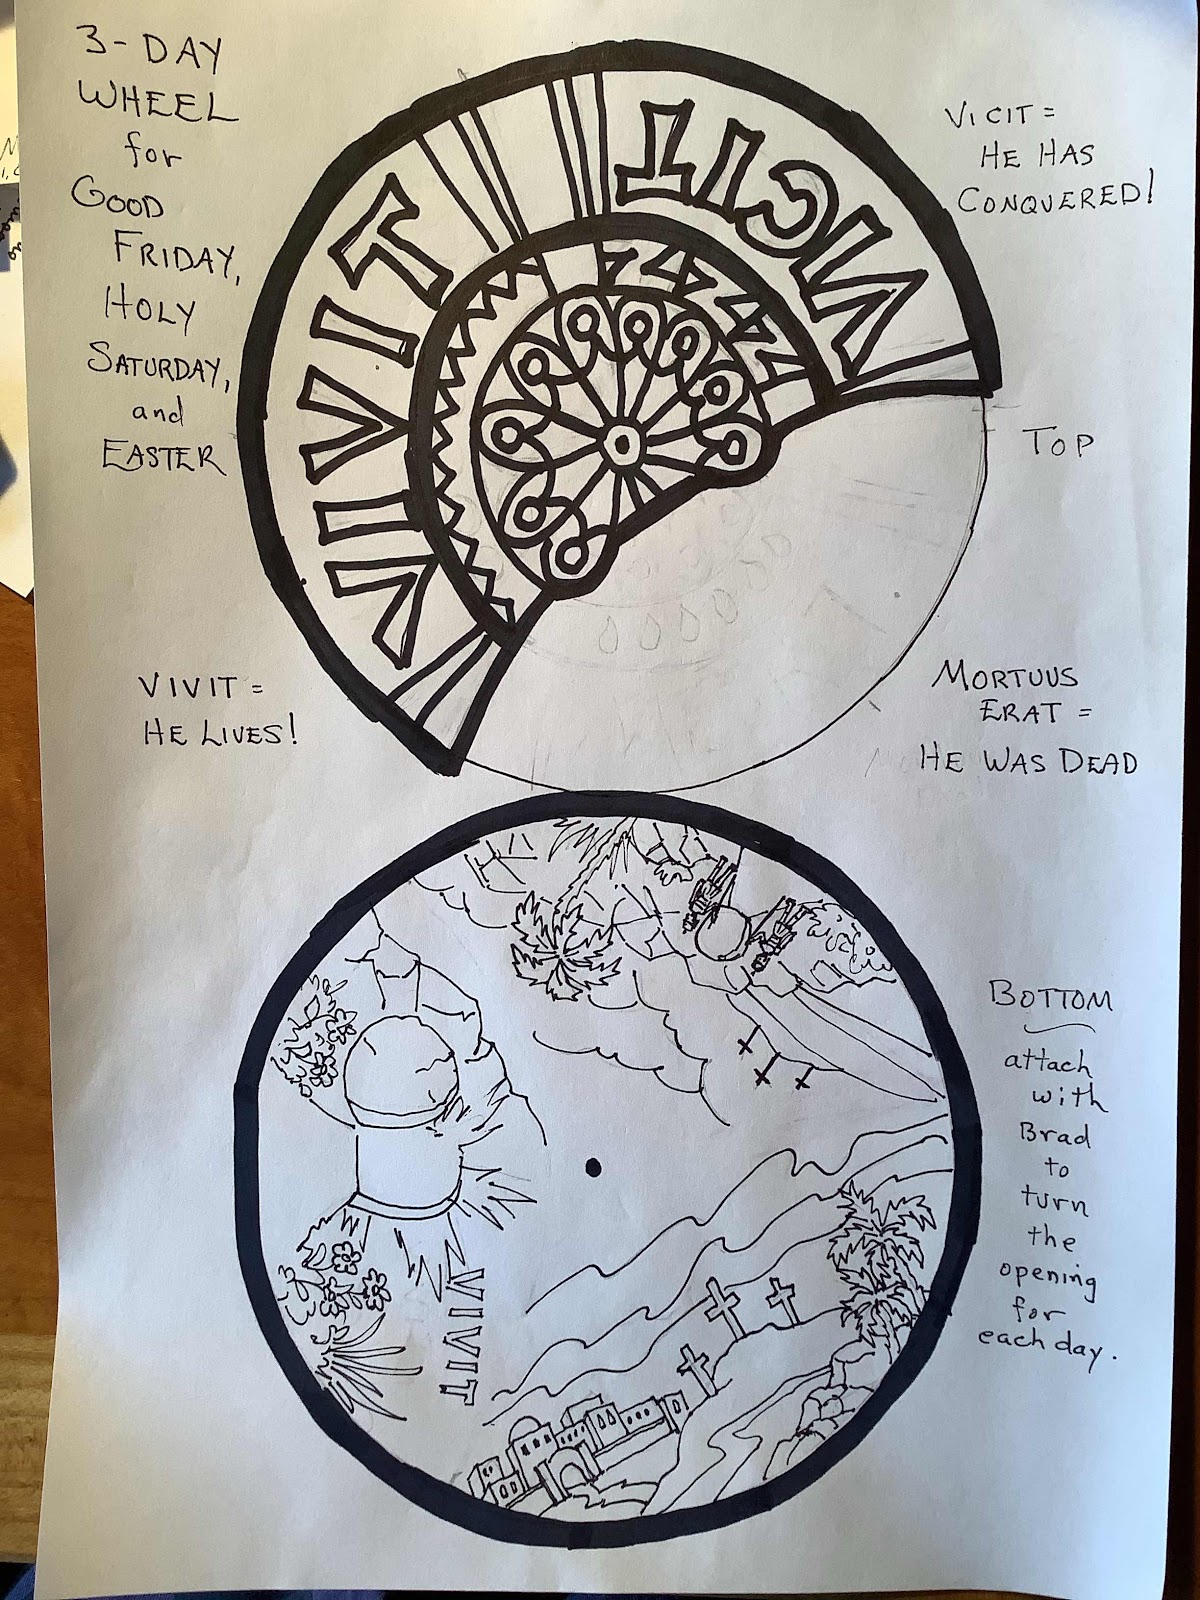 3-DAY
WHEEL
for
GOOD
FRIDAY,
HOLY
SATURDAY,
and
EASTER
VICIT =
HE HAS
CONQUERED!
VICIT
VIVIT
TOP
VIVIT =
HE LIVES!
MORTUUS
ERAT =
HE WAS DEAD
VIVIT
BOTTOM
attach
with
Brad
to
turn
the
opening
for
each day.